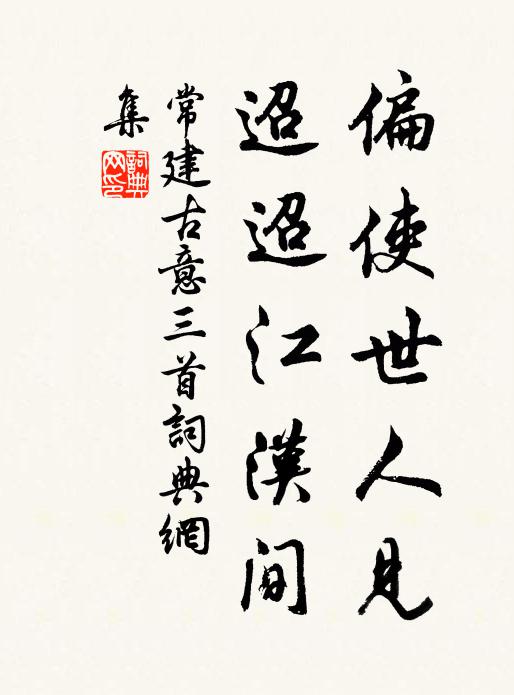 偏使世人見
迢迢江漢間
常建古意三首詞典網
集
詞典
网印